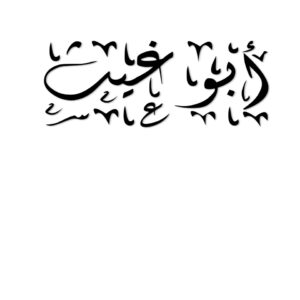 أبو غيث